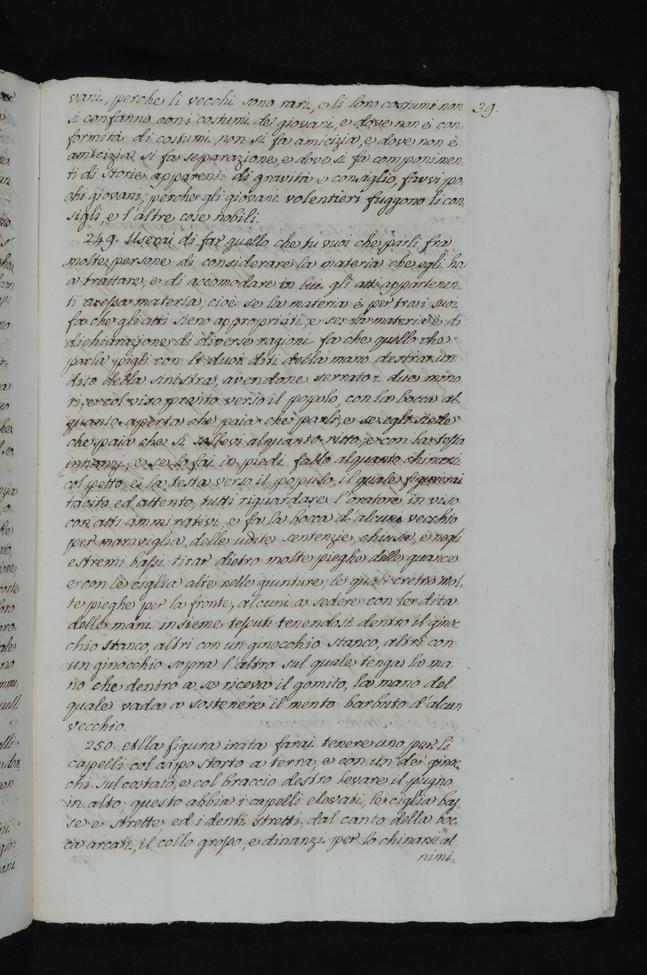 vani, perche li vecchi sono rari, e li loro costumi non 39.
si confanno con i costumi de giovani, e dove non è con-
formità di costumi non si fa amicizia, e dove non è
amicizia si fa separazione, e dove si fà componimen-
ti di storie apparenti di gravità e consiglio, favvi po-
chi giovani, perche gli giovani volentieri fuggono li con-
sigli, e l'altre cose nobili.
249. Userai di far quello che tu vuoi che parli fra
molte persone di considerare la materia che egli ha
a trattare, e di accomodare in lui gli atti appartenen-
ti a essa materia, cioè se la materia è per
fa che gli atti sieno appropriati, e se la materia è di
dichiarazione di diverse ragioni fa che quello che
parla pigli con li duoi diti della mano destra un
dito della sinistra, avendone serrato i due mino-
ri, e col viso pronto verso il popolo, con la bocca al-
quanto aperta che paia che parli, e se egli siede
che paia che si sollevi alquanto ritto, e con la testa
inanzi, e se lo fai in piedi fallo alquanto chinarsi
col petto, e la testa verso il popolo, il quale figurerai
tacito ed attento, tutti riguardare l'oratore in viso
con atti ammirativi, e fa la bocca d'alcun vecchio
per maraviglia delle udite sentenzie, chiusa, e negli
estremi bassi tirar dietro molte pieghe delle guance
e con le ciglia alte nelle giunture, le quali creino mol-
te pieghe per la fronte, alcuni a sedere con le dita
delle mani insieme tessuti tenendosi dentro il ginoc-
chio stanco, altri con un ginocchio stanco, altri con
un ginocchio sopra l'altro sul quale tenga la ma-
no che dentro a se riceva il gomito, la mano del
quale vada a sostenere il mento barbuto d'alcun
vecchio.
250. Alla figura irata farai tenere uno per li
capelli col capo storto a terra, e con un de ginoc-
chi sul costato, e col braccio destro levare il pugno
in alto; questo abbia i capelli elevati, le ciglia bas-
se e strette, ed i denti stretti, dal canto della boc-
ca arcati, il collo grosso, e dinanzi per lo chinare al
nimi-